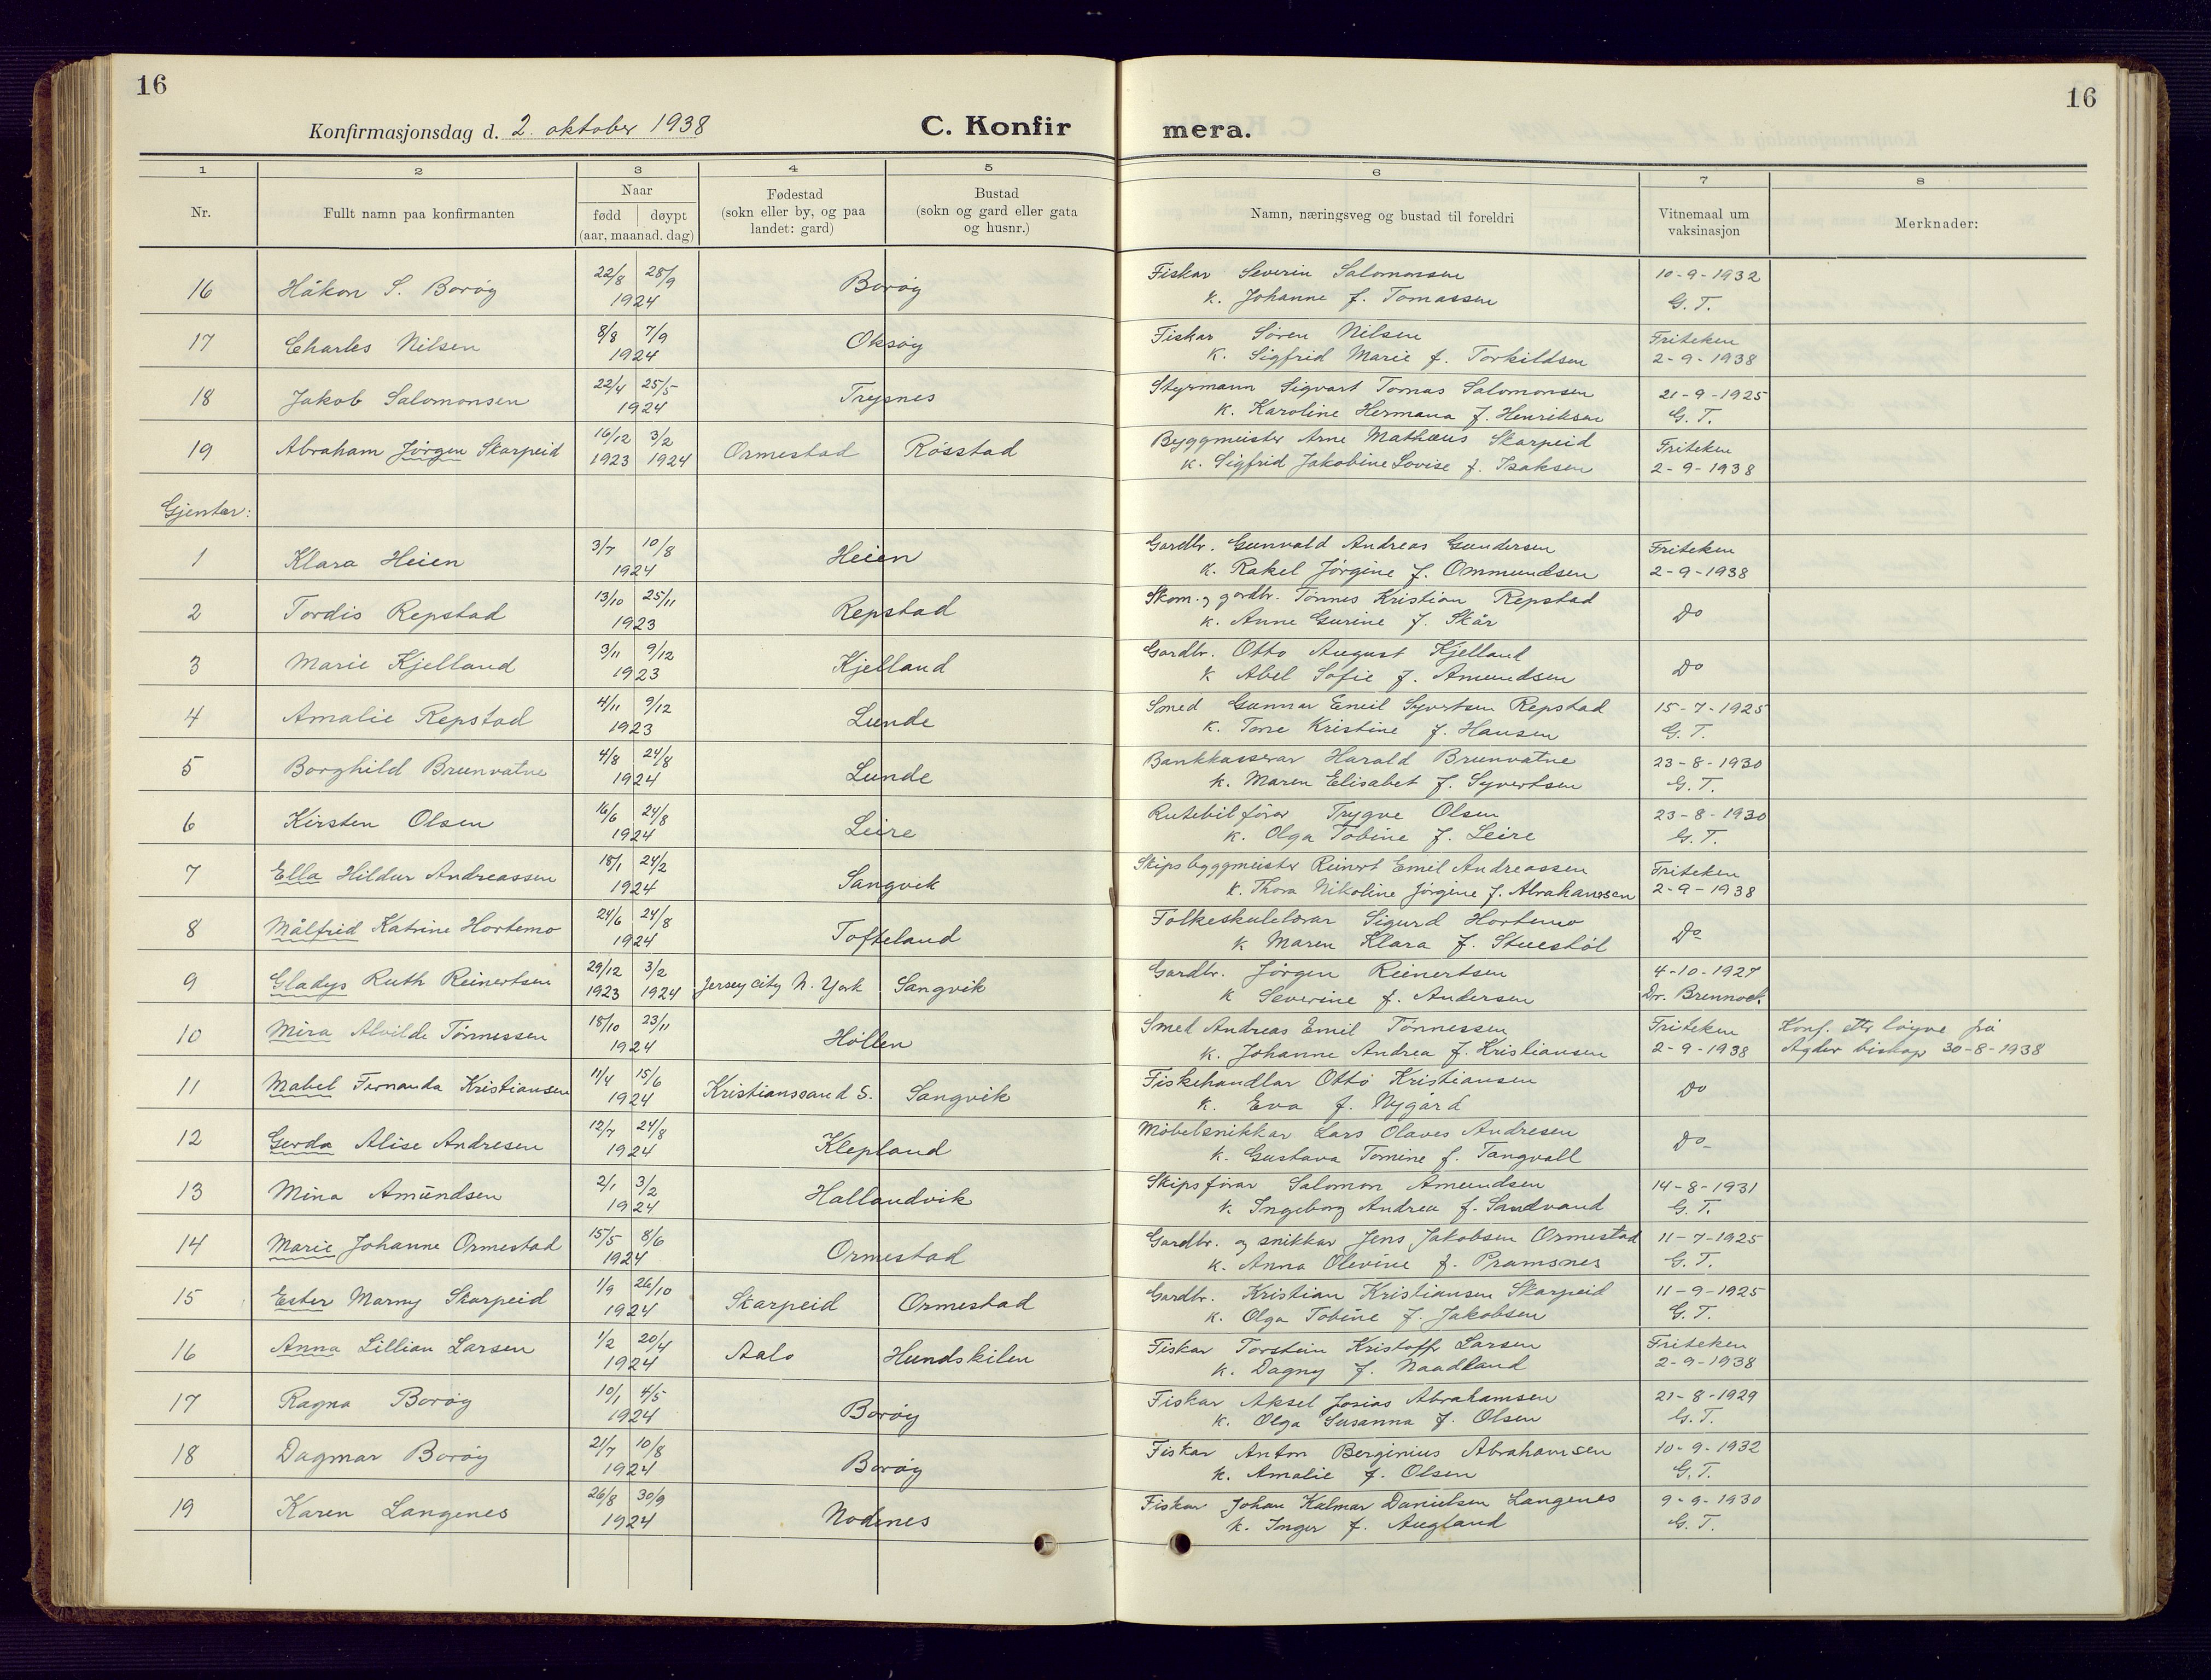 16
16
Konfirmasjonsdag d. 2. oktober 1938
C. Konfir mera.
1 2 3 4 5 6 7 8
Nr.
Fullt namn paa konfirmanten
Naar
fødd døypt
(aar, maanad. dag)
Fødestad
(sokn eller by, og paa
landet: gard)
Bustad
(sokn og gard eller gata
og husnr.)
Namn, næringsveg og bustad til foreldri
Vitnemaal um
vaksinasjon
Merknader:
16 Håkon S. Borøy 22/8 28/9 1924 Borøy Fiskar Severin Salomonsen 10-9-1932
k. Johanne f. Tomassen G. T.
17 Charles Nilsen 8/8 7/9 1924 Oksøy Fiskar Søren Nilsen Friteken
k. Sigfrid Marie f. Torkildsen 2-9-1938
18 Jakob Salomonsen 22/4 25/5 1924 Trysnes Styrmann Sigvart Tomas Salomonsen 21-9-1925
k. Karoline Hermana f. Henriksen G. T.
19 Abraham Jörgen Skarpeid 16/12 1923 3/2 1924 Ormestad Røsstad Byggmeister Arne Mathæus Skarpeid Friteken
k. Sigfrid Jakobine Lovise f. Isaksen 2-9-1938
Gjentor:
1 Klara Heien 3/7 10/8 1924 Heien Gardbr. Gunvald Andreas Gundersen Friteken
k. Rakel Jørgine f. Ommundsen 2-9-1938
2 Tordis Repstad 13/10 25/11 1923 Repstad Skom. og gardbr. Tönnes Kristian Repstad Do
k. Anne Gurine f. Skår
3 Marie Kjelland 3/11 9/12 1923 Kjelland Gardbr. Otto August Kjelland Do
k Abel Sofie f. Amundsen
4 Amalie Repstad 4/11 9/12 1923 Lunde Smed Gunnar Emil Syvertsen Repstad 15-7-1925
k. Tone Kristine f. Hansen G. T.
5 Borghild Brunvatne 4/8 24/8 1924 Lunde Bankkasserar Harald Brunvatne 23-8-1930
k. Maren Elisabet f. Syvertsen G. T.
6 Kirsten Olsen 16/6 24/8 1924 Leire Rutebilförar Trygve Olsen 23-8-1930
k. Olga Tobine f. Leire G. T.
7 Ella Hildur Andreassen 18/1 24/2 1924 Sangvik Skipsbyggmeister Reinert Emil Andreassen Friteken
k. Thora Nikoline Jörgine f. Abrahamsen 2-9-1938
8 Målfrid Katrine Hortemo 24/6 24/8 1924 Tofteland Folkeskulelærar Sigurd Hortemo Do
k Maren Klara f. Stuestøl
9 Gladys Ruth Reinertsen 29/12 1923 3/2 1924 Jersey city N. York Sangvik Gardbr. Jörgen Reinertsen 4-10-1927
k Severine f. Andersen Dr. Brennod.
10 Mira Alvilde Tönnessen 18/10 23/11 1924 Höllen Smed Andreas Emil Tönnessen Friteken Konf. ette löyve frå
k. Johanne Andrea f. Kristiansen 2-9-1938 Agder biskop 30-8-1938
11 Mabel Fernanda Kristiansen 11/4 15/6 1924 Kristianssand S. Sangvik Fiskehandlar Otto Kristiansen Do
k. Eva f. Nygård
12 Gerda Alise Andresen 12/7 24/8 1924 Klepland Möbelsnikkar Lars Olaves Andresen Do
k. Gustava Tomine f. Tangvall
13 Mina Amundsen 2/1 3/2 1924 Hallandvik Skipsförar Salomon Amundsen 14-8-1931
k. Ingeborg Andrea f. Sandvand G. T.
14 Marie Johanne Ormestad 15/5 8/6 1924 Ormestad Gardbr. og snikkar Jens Jakobsen Ormestad 11-7-1925
k. Anna Olevine f. Pramsnes G. T.
15 Ester Marny Skarpeid 1/9 26/10 1924 Skarpeid Ormestad Gardbr. Kristian Kristiansen Skarpeid 11-9-1925
k. Olga Tobine f. Jakobsen G. T.
16 Anna Lillian Larsen 1/2 20/4 1924 Aalo Hundskilen Fiskar Torstein Kristoffr Larsen Friteken
k. Dagny f. Naadland 2-9-1938
17 Ragna Borøy 10/1 4/5 1924 Borøy Fiskar Aksel Josias Abrahamsen 21-8-1929
k. Olga Susanna f. Olsen G. T.
18 Dagmar Borøy 21/7 10/8 1924 Borøy Fiskar Anton Berginius Abrahamsen 10-9-1932
k. Amalie f. Olsen G. T.
19 Karen Langenes 26/8 30/9 1924 Nodenes Fiskar Johan Kalmar Danielsen Langenes 9-9-1930
k. Inger f. Augland G. T.